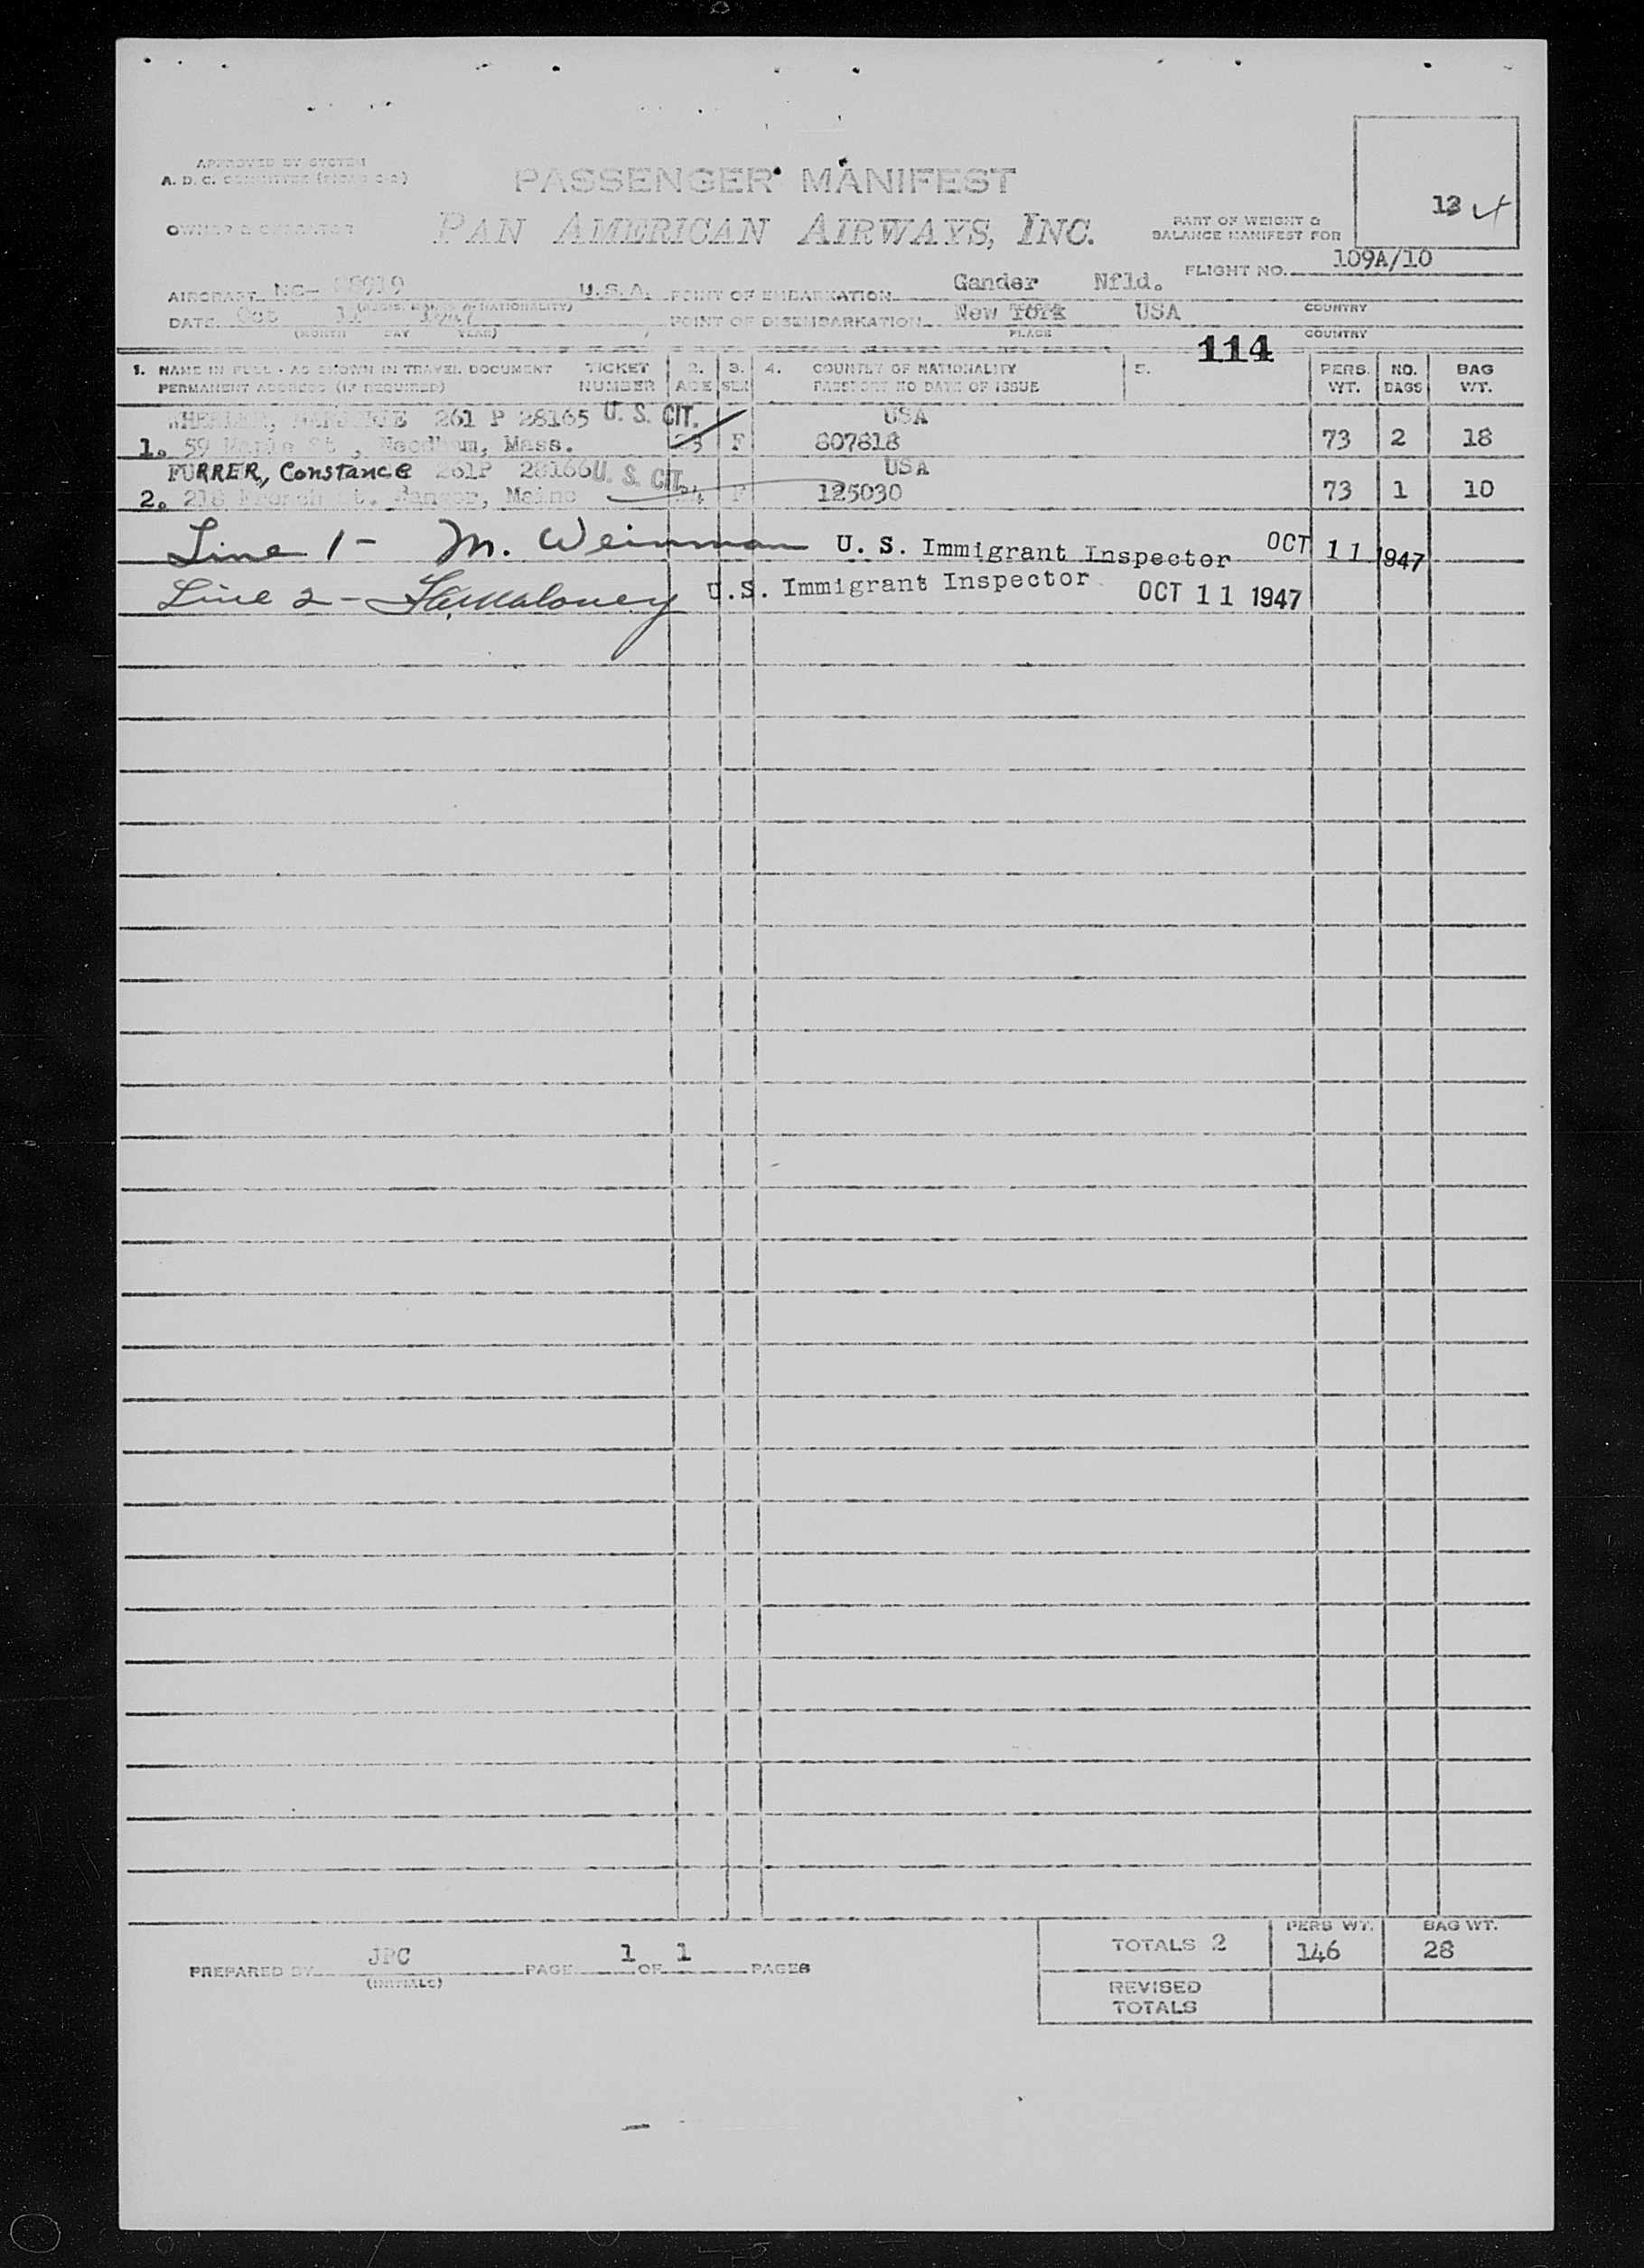 APPROVED BY SYSTEM
A. D. C. COMMITTEE
PASSENGER MANIFEST
13
OWNER & OPERATOR
PAN AMERICAN AIRWAYS, INC.
PART OF WEIGHT &
BALANCE MANIFEST FOR
FLIGHT NO. 109A/10
AIRCRAFT NC- 88919 U.S.A. POINT OF EMBARKATION Gander Nfld.
(NATIONALITY) PLACE COUNTRY
DATE Oct 1947 POINT OF DISEMBARKATION New York USA
(MONTH DAY YEAR) PLACE COUNTRY
114
1. NAME IN FULL - AS SHOWN IN TRAVEL DOCUMENT TICKET 2. 3. 4. COUNTRY OF NATIONALITY 5. PERS. NO. BAG
PERMANENT ADDRESS (IF REQUIRED) NUMBER AGE SEX PASSPORT NO DATE OF ISSUE WT. BAGS WT.
WHEELER, MARJORIE 261 P 28165 U. S. CIT. USA
1. 59 Maple St., Needham, Mass. F 807818 73 2 18
FURRER, Constance 261P 28166 U. S. CIT. USA
2. 218 French St. Bangor, Maine F 125030 73 1 10
Line 1 - M. Weinman U. S. Immigrant Inspector OCT 11 1947
Line 2 - Maloney U.S. Immigrant Inspector OCT 11 1947
PERS WT. BAG WT.
TOTALS 2 146 28
PREPARED BY JPC PAGE 1 OF 1 PAGES
(INITIALS)
REVISED
TOTALS